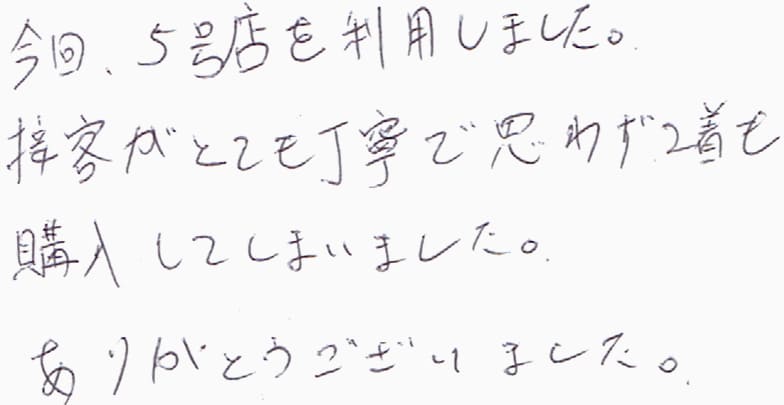 今回、5号店を利用しました。
接客がとても丁寧で思わず2着も
購入してしまいました。
ありがとうございました。